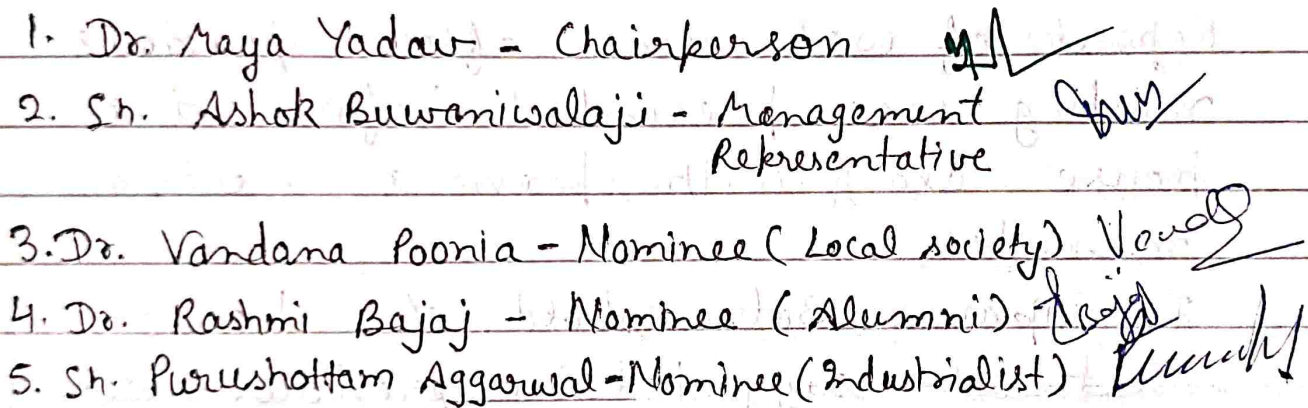 1. Dr. Maya Yadav - Chairperson
2. Sh. Ashok Buwaniwalaji - Management
Representative
3. Dr. Vandana Poonia - Nominee (Local society)
4. Dr. Rashmi Bajaj - Nominee (Alumni)
5. Sh. Purushottam Aggarwal - Nominee (Industrialist)